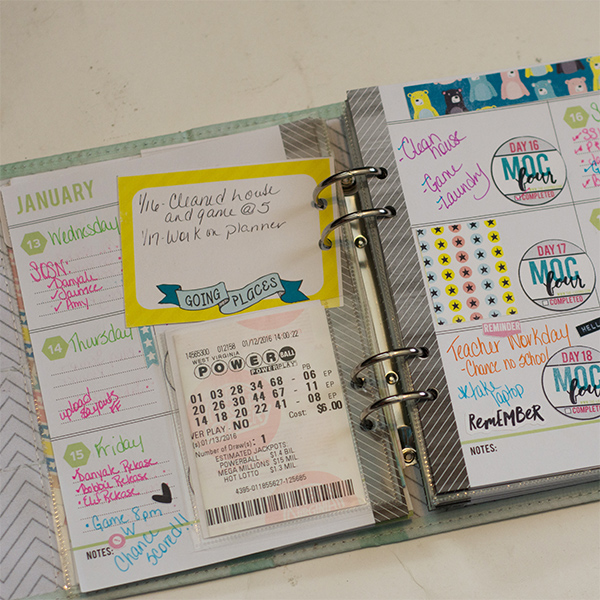 JANUARY
13 Wednesday
SOSN:
Danyale
Jaunice
Amy
14 Thursday
upload
layouts
15 Friday
Danyale Release
Release
Release
Game 8pm
W
Chance
scored!!
NOTES:
1/16-Cleaned house
and game @ 5
1/17-Work on planner
GOING PLACES
14565300 012158 01/12/2016 14:00:22
WEST VIRGINIA
POWERBALL
POWERPLAY
PB EP
01 03 28 34 68 - 06 EP
20 26 30 44 67 - 11 EP
14 18 20 22 41 - 08 EP
Cost: $6.00
VER PLAY - NO
Number of Draw(s): 1
(s) 01/13/2016
ESTIMATED JACKPOTS:
POWERBALL $1.4 BIL
MEGA MILLIONS $15 MIL
HOT LOTTO $1.3 MIL
4395-011855627-125685
-Clean
house
-Game
-Laundry
DAY 16
MOC
four
COMPLETED
16
DAY 17
MOC
four
COMPLETED
REMINDER
HELL
Teacher Workday
-Chance no school
*take
laptop
REMEMBER
DAY 18
MOC
four
COMPLETED
NOTES: